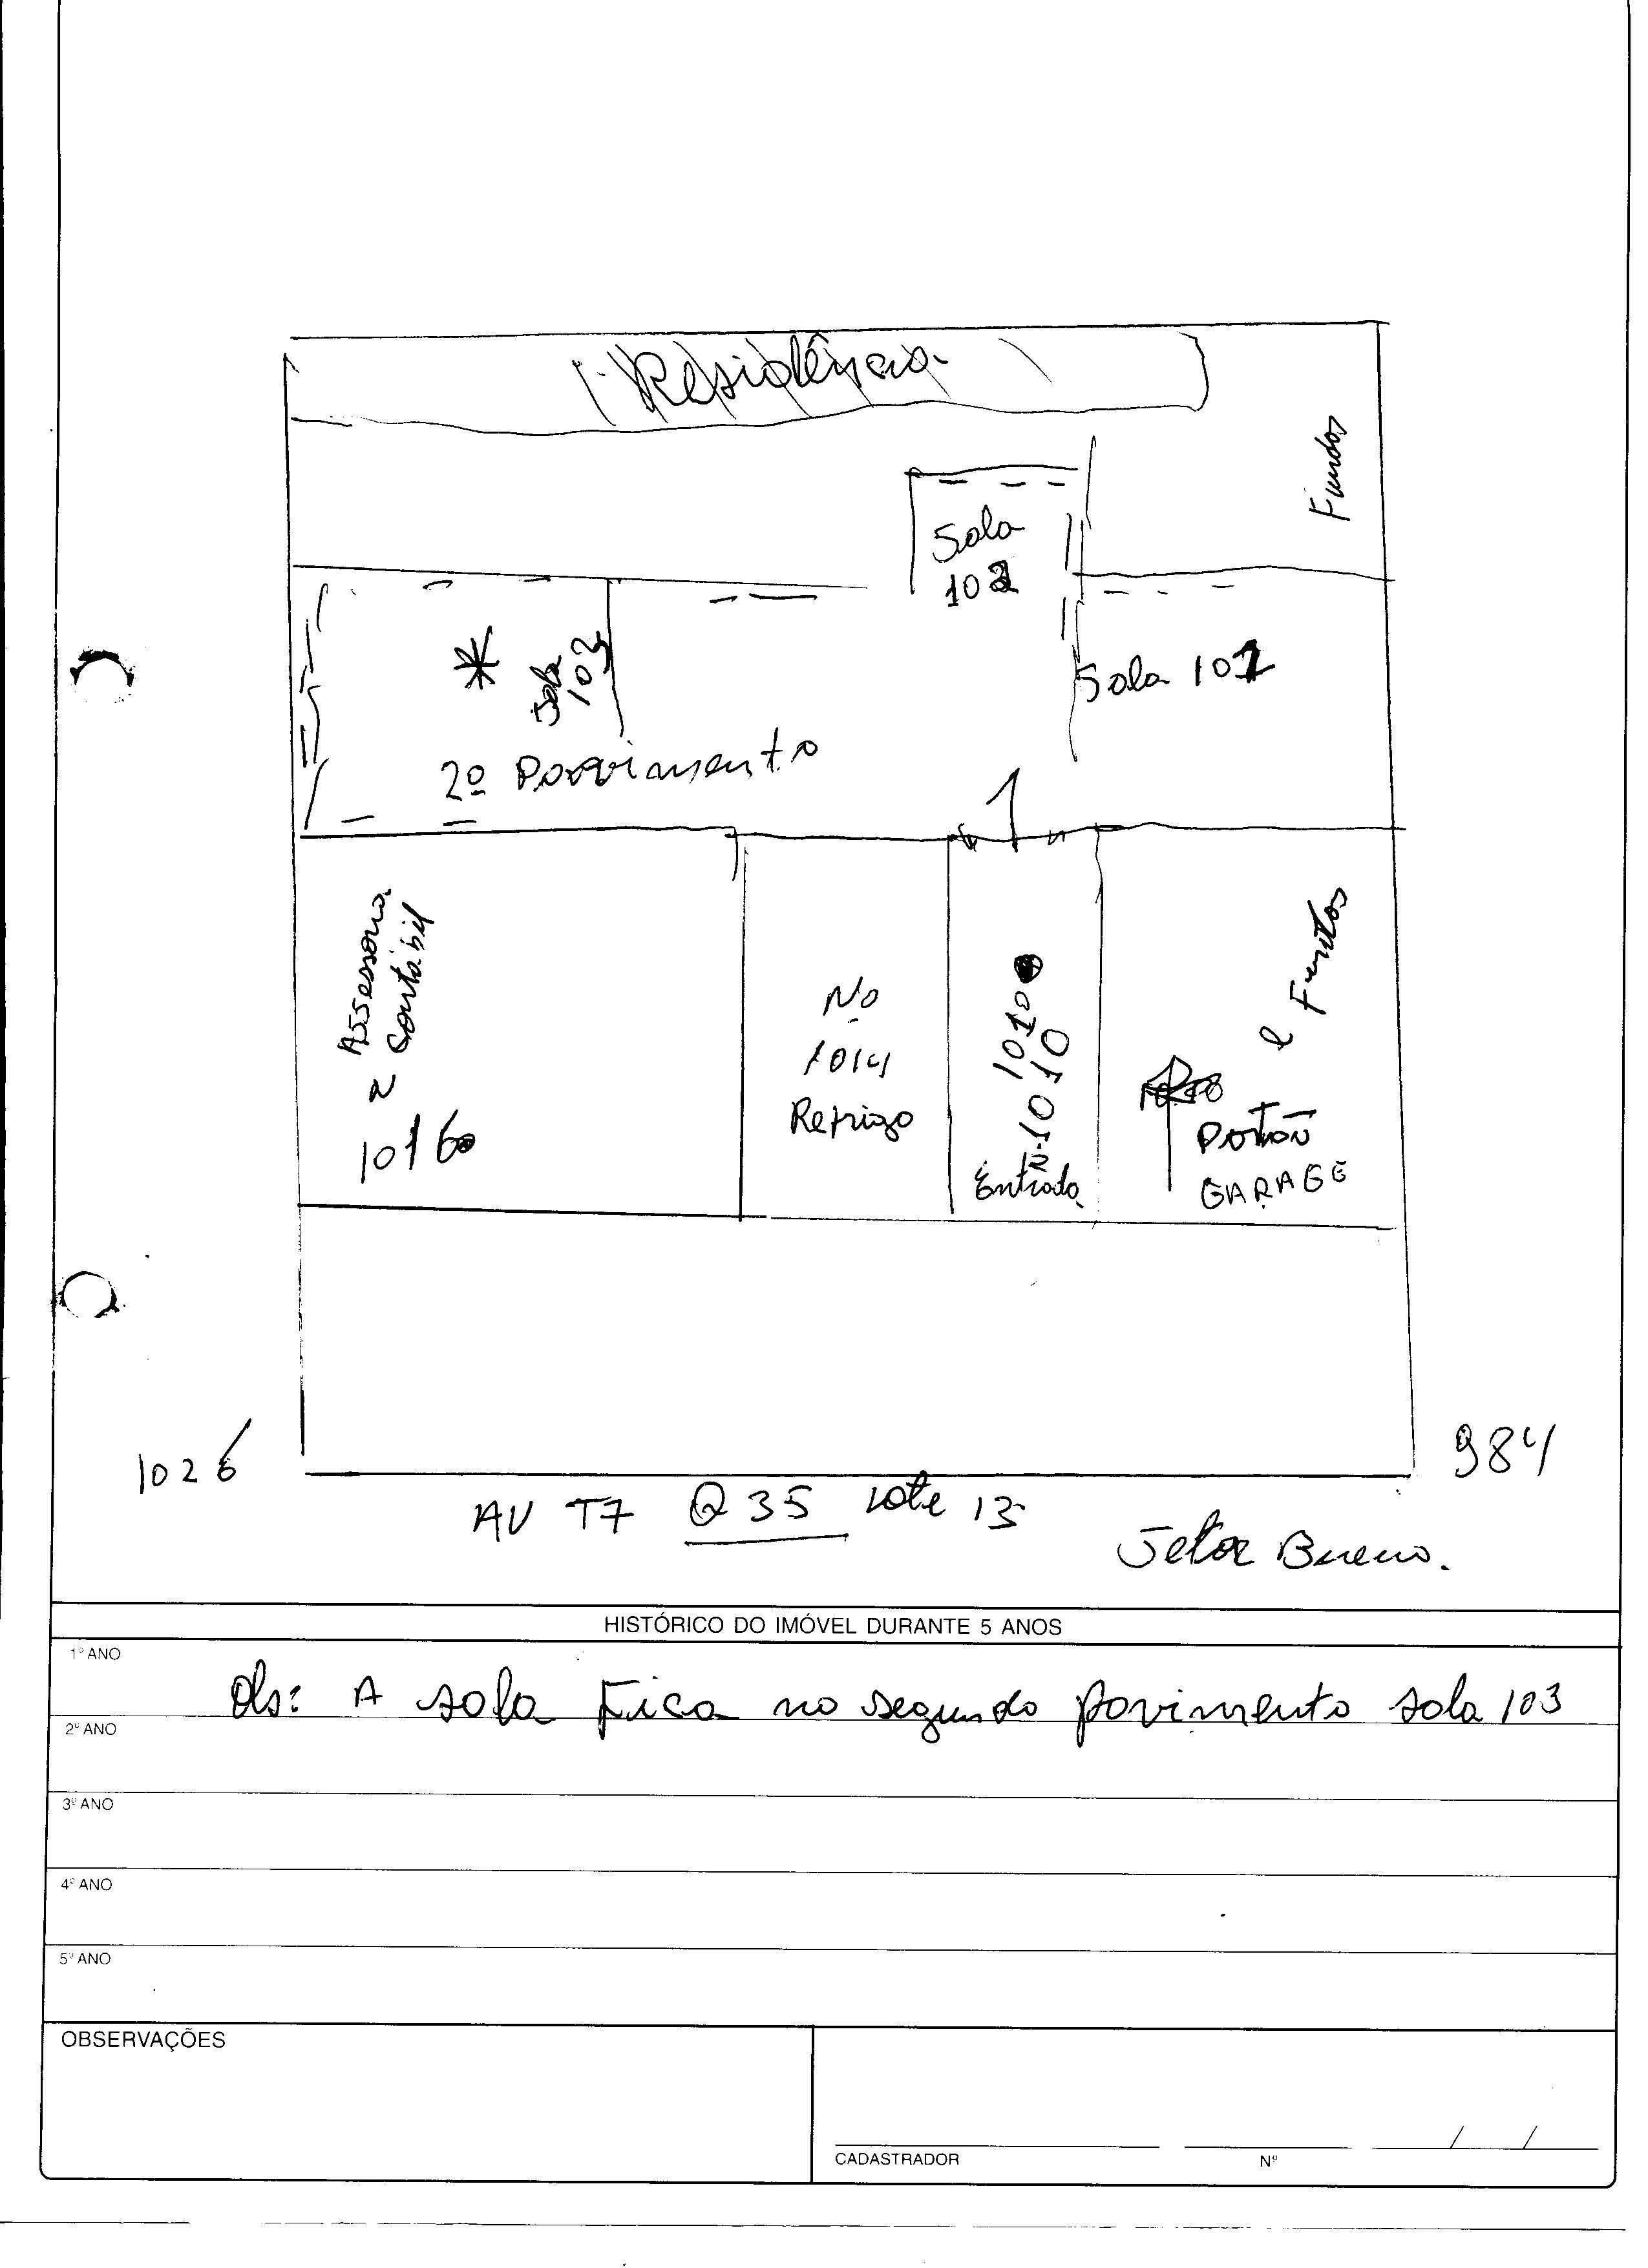 Residência
Fundos
Sala
102
Sala
103
Sala 101
2º Pavimento
1
Assessoria
Contábil
1016
Nº
1014
Refrigo
1010
Nº 1010
Entrada
e Fundos
Portão
GARAGE
1026
984
AV T7 Q 35 Lote 13
Setor Bueno.
HISTÓRICO DO IMÓVEL DURANTE 5 ANOS
1º ANO
Obs: A sala Fica no segundo pavimento sala 103
2º ANO
3º ANO
4º ANO
5º ANO
OBSERVAÇÕES
/ /
CADASTRADOR Nº